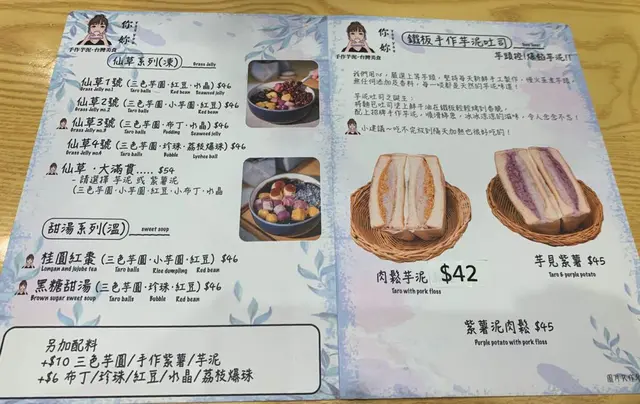 你妳
手作芋泥·台灣美食
仙草系列(凍)
Grass Jelly
仙草1號 (三色芋圓·紅豆·水晶) $46
Grass Jelly no.1 Taro balls Red bean Seaweed jelly
仙草2號 (三色芋圓·小芋圓·紅豆) $46
Grass Jelly no.2 Taro balls Red bean
仙草3號 (三色芋圓·布丁·水晶) $46
Grass Jelly no.3 Taro balls Pudding Seaweed jelly
仙草4號 (三色芋圓·珍珠·荔枝爆珠) $46
Grass Jelly no.4 Taro balls Bubble Lychee ball
仙草·大滿貫..... $54
- 請選擇 芋泥 或 紫薯泥
(三色芋圓·小芋圓·紅豆·小布丁·水晶
甜湯系列(溫)
sweet soup
桂圓紅棗 (三色芋圓·小芋圓·紅豆) $46
Longan and jojoba tea Taro balls Rice dumpling Red bean
黑糖甜湯 (三色芋圓·珍珠·紅豆) $46
Brown sugar sweet soup Taro balls Bubble Red bean
另加配料
+$10 三色芋圓/手作紫薯/芋泥
+$6 布丁/珍珠/紅豆/水晶/荔枝爆珠
你妳
手作芋泥·台灣美食
鐵板手作芋泥吐司
芋頭控!痛餡芋泥!!
芋泥吐司之誕生!
將麵包吐司塗上鮮牛油在鐵板輕輕燒到香脆,
小建議~吃不完放到隔天加熱也很好吃的!
肉鬆芋泥 $42
Taro with pork floss
芋見紫薯 $45
Taro & purple potato
紫薯泥肉鬆 $45
Purple potato with pork floss